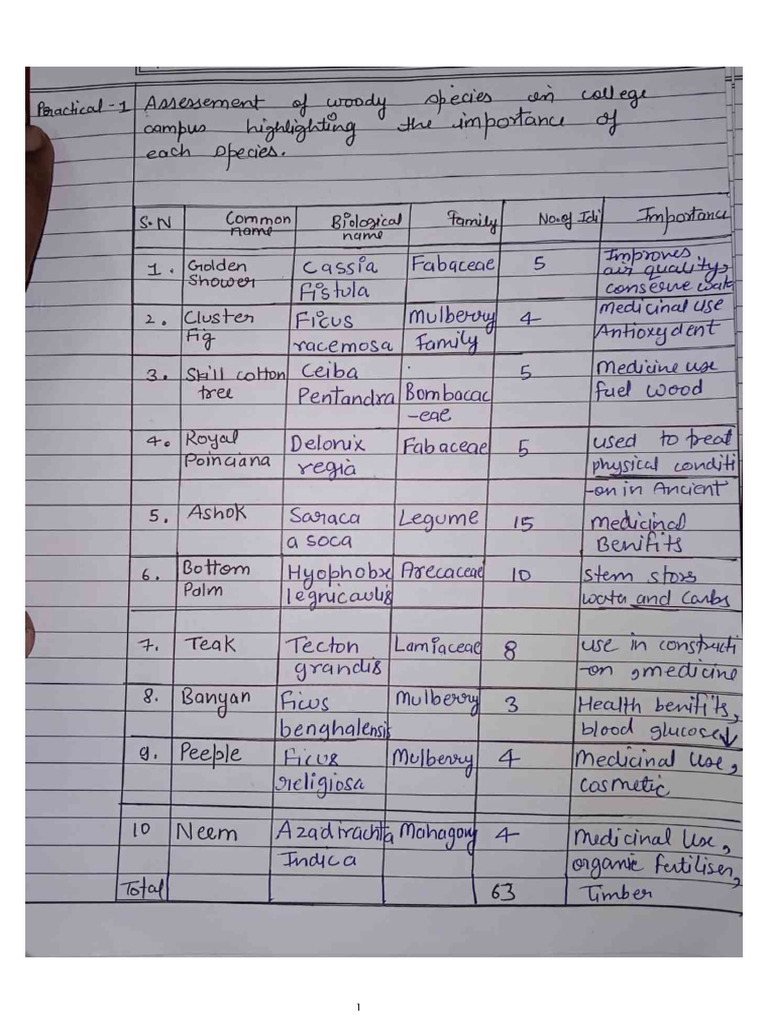 Practical-1 Assessement of woody species in college
campus highlighting the importance of
each species.
S.N Common name Biological name Family No.of Idi Importance
1. Golden Shower Cassia fistula Fabaceae 5 Improves air quality, conserve wate
2. Cluster Fig Ficus racemosa Mulberry Family 4 Medicinal use Antioxydent
3. Skill cotton tree Ceiba Pentandra Bombacac-eae 5 Medicine use fuel wood
4. Royal Poinciana Delonix regia Fabaceae 5 used to treat physical conditi-on in Ancient
5. Ashok Saraca asoca Legume 15 medicinal Benifits
6. Bottom Palm Hyophobe legnicaulis Arecaceae 10 Stem stors wata and carbs
7. Teak Tecton grandis Lamiaceae 8 use in constructi-on, medicine
8. Banyan Ficus benghalensis Mulberry 3 Health benifits, blood glucose↓
9. Peeple Ficus religiosa Mulberry 4 Medicinal Use, cosmetic
10 Neem Azadirachta Indica Mahagony 4 Medicinal Use, organic fertiliser,
Total 63 Timber
1